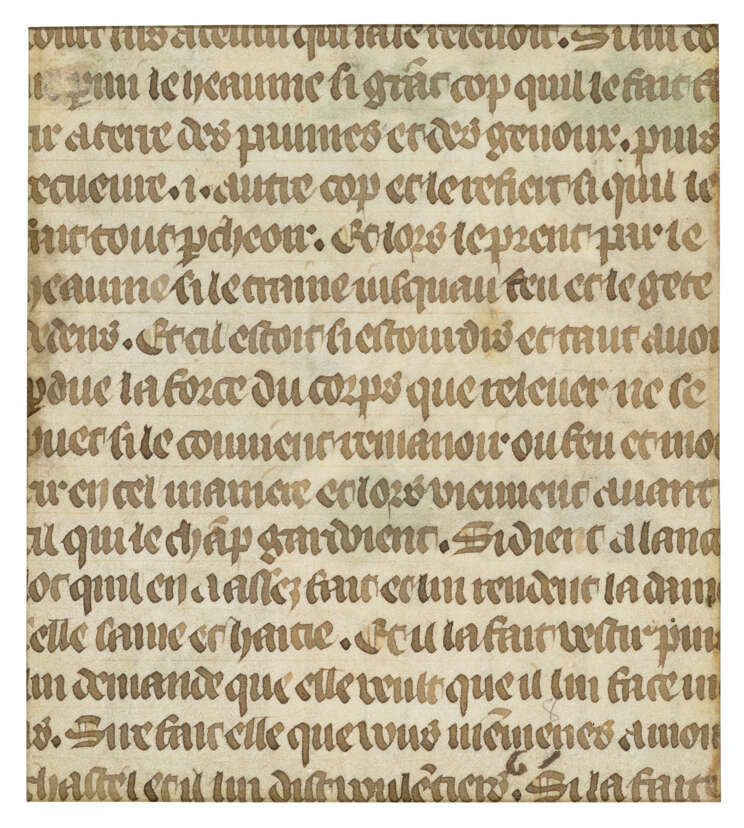 qui la le relenoit. Si lui do
parmi le heaume si grãt cop quil le fait fla
tir a terre des paumes et des genoux. puis
recueure .i. autre cop et le refiert si quil le
fait tout ꝑcheoir. Et lors le prent par le
heaume si le traine iusquau feu et le gete
dedens. Et cil estoit si estourdis et tant auoit
ꝑdue la force du corps que releuer ne se
puet si le couuient remanoir ou feu et mo
rir en tel maniere et lors viennent auant
cil qui le chãp gardoient. Si dient a lance
lot quil en a assez fait et lui rendent la damoi
selle saine et haitie. Et il la fait vestir puis
lui demande que elle veult que il lui face
Sire fait elle que vous mẽmenes a mon
chastel et il lui dist voulẽtiers. Si la fait